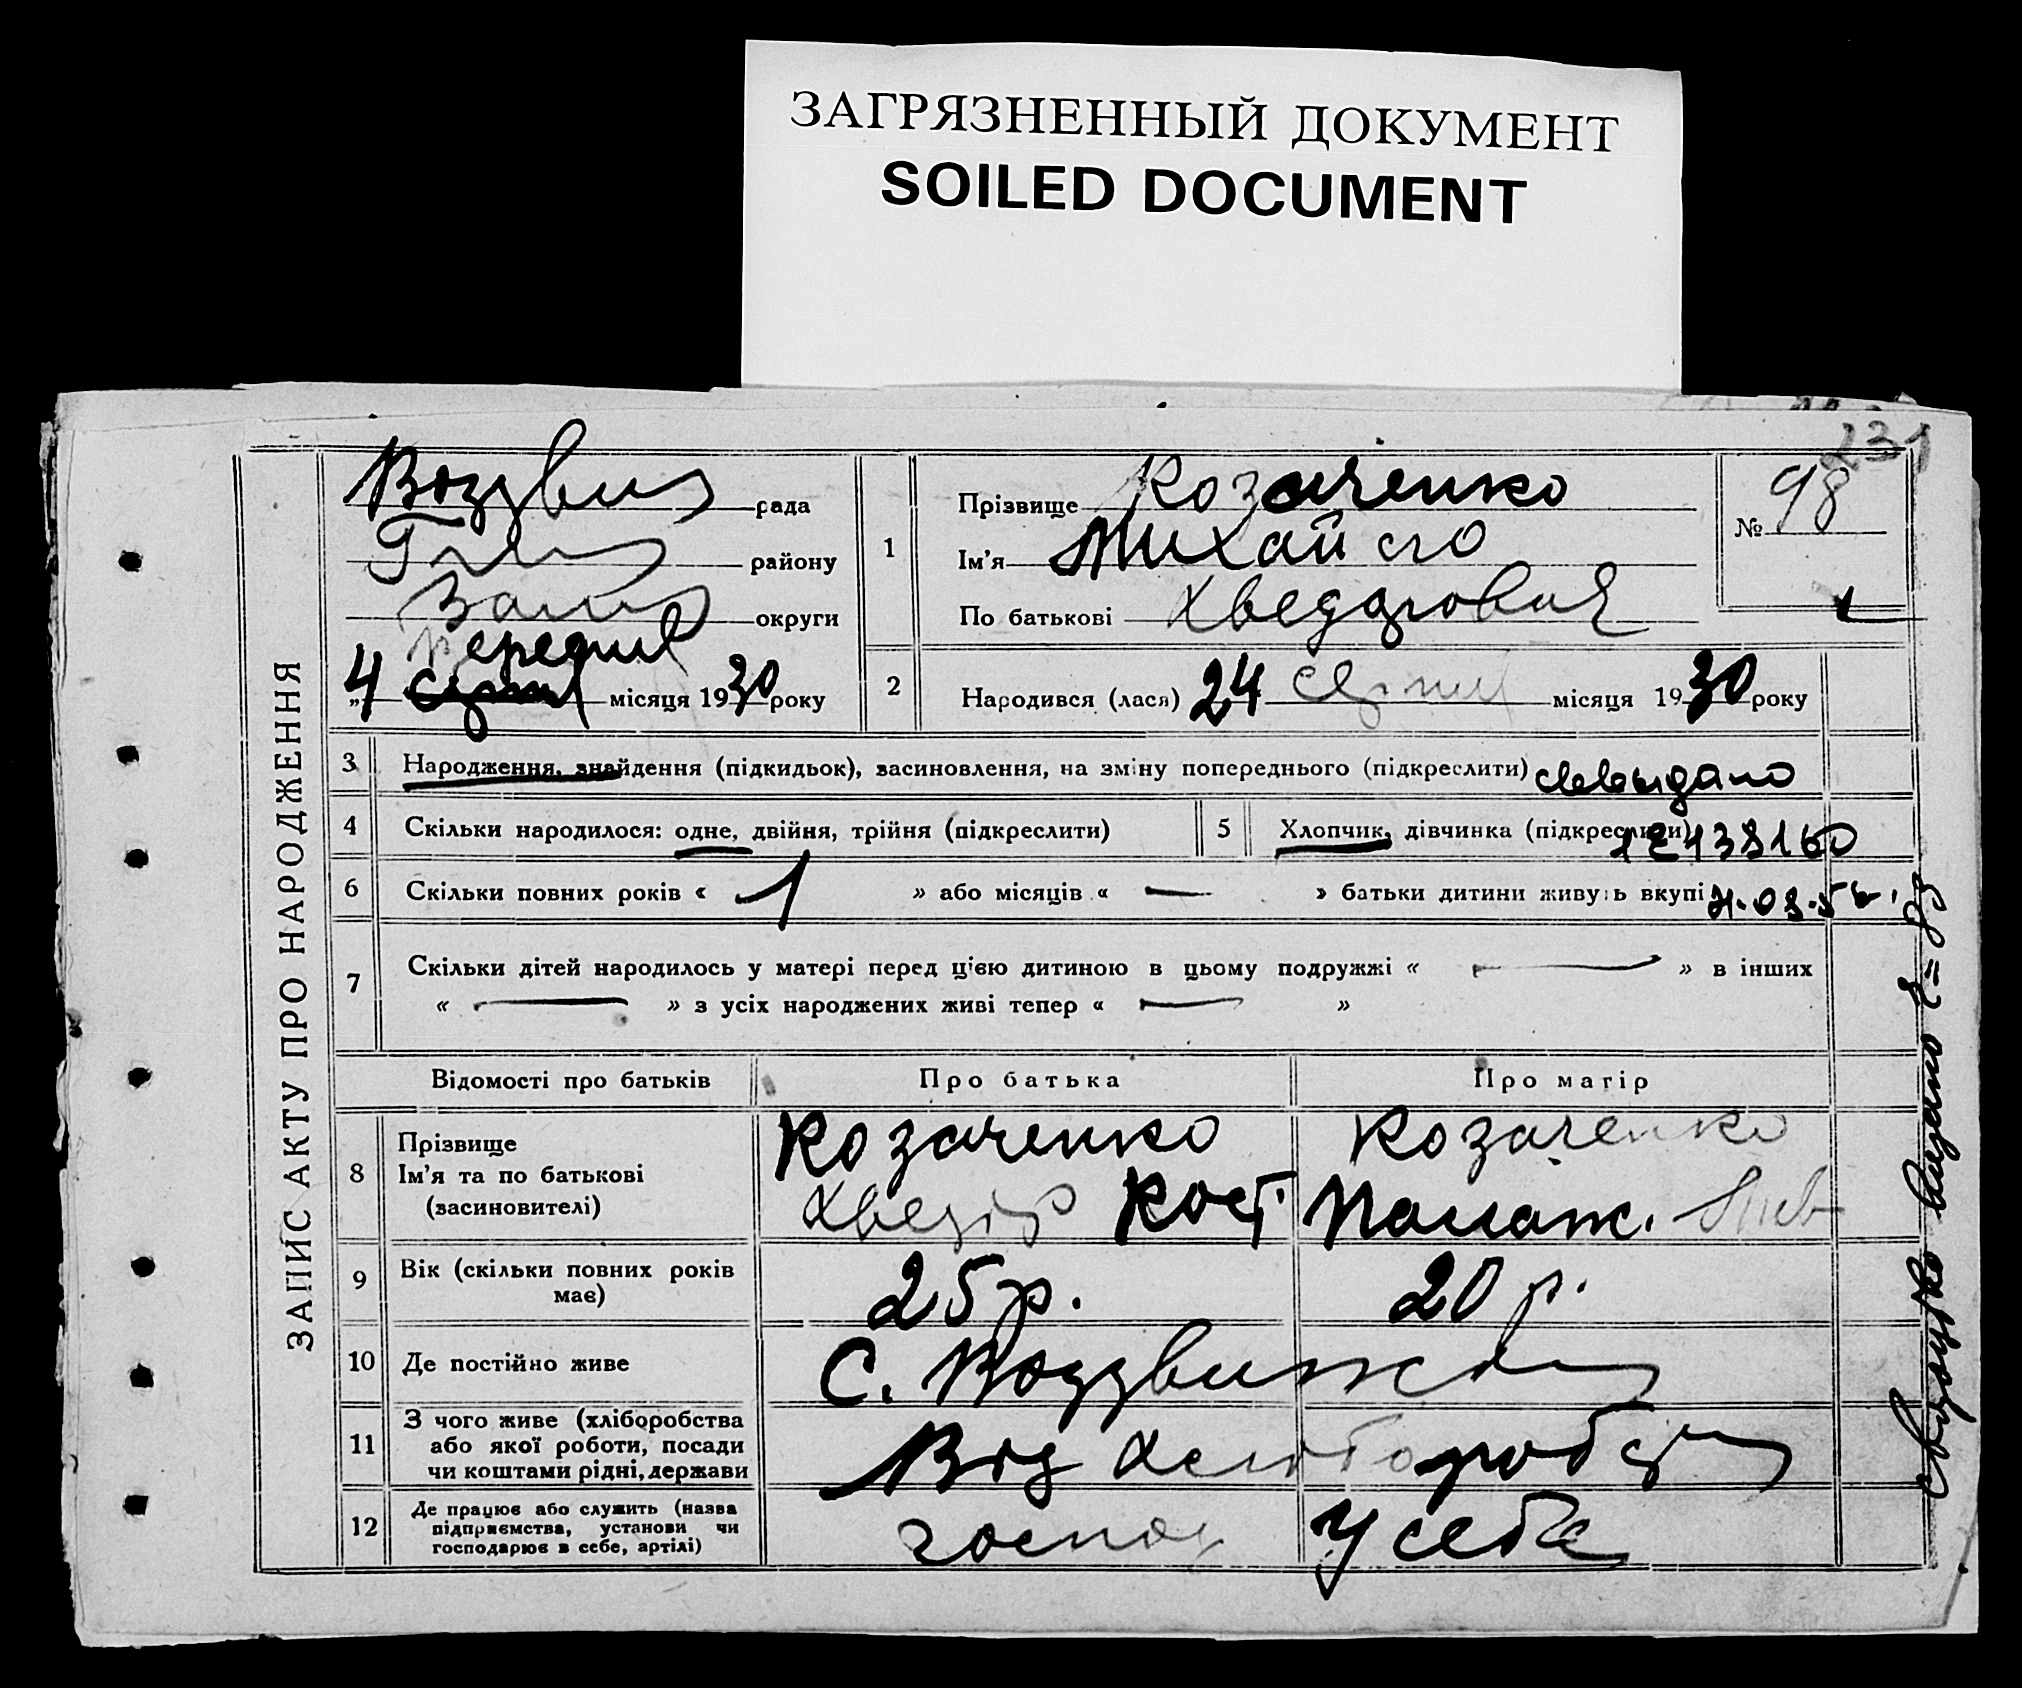 ЗАГРЯЗНЕННЫЙ ДОКУМЕНТ
SOILED DOCUMENT
231
ЗАПИС АКТУ ПРО НАРОДЖЕННЯ
Воздвиж рада
району
округи
вересня
„4 місяця 1930 року
1
Прізвище Козаченко
Ім'я Михайло
По батькові Хведорович
№ 98
2 Народився (лася) 24 серпня місяця 1930 року
3 Народження, знайдення (підкидьок), засиновлення, на зміну попереднього (підкреслити)
4 Скільки народилося: одне, двійня, трійня (підкреслити)
5 Хлопчик, дівчинка (підкреслити)
6 Скільки повних років « 1 » або місяців « — » батьки дитини живуть вкупі
7 Скільки дітей народилось у матері перед цією дитиною в цьому подружжі « — » в інших
« — » з усіх народжених живі тепер « — »
Відомості про батьків Про батька Про матір
8 Прізвище
Ім'я та по батькові
(засиновителі)
Козаченко
Хведір Кост
Козаченко
Палаж.
9 Вік (скільки повних років має) 25 р. 20 р.
10 Де постійно живе С. Воздвижен
11 З чого живе (хліборобства
або якої роботи, посади
чи коштами рідні, держави
Від хліборобст
12 Де працює або служить (назва
підприємства, установи чи
господарює в себе, артілі)
господ у себе